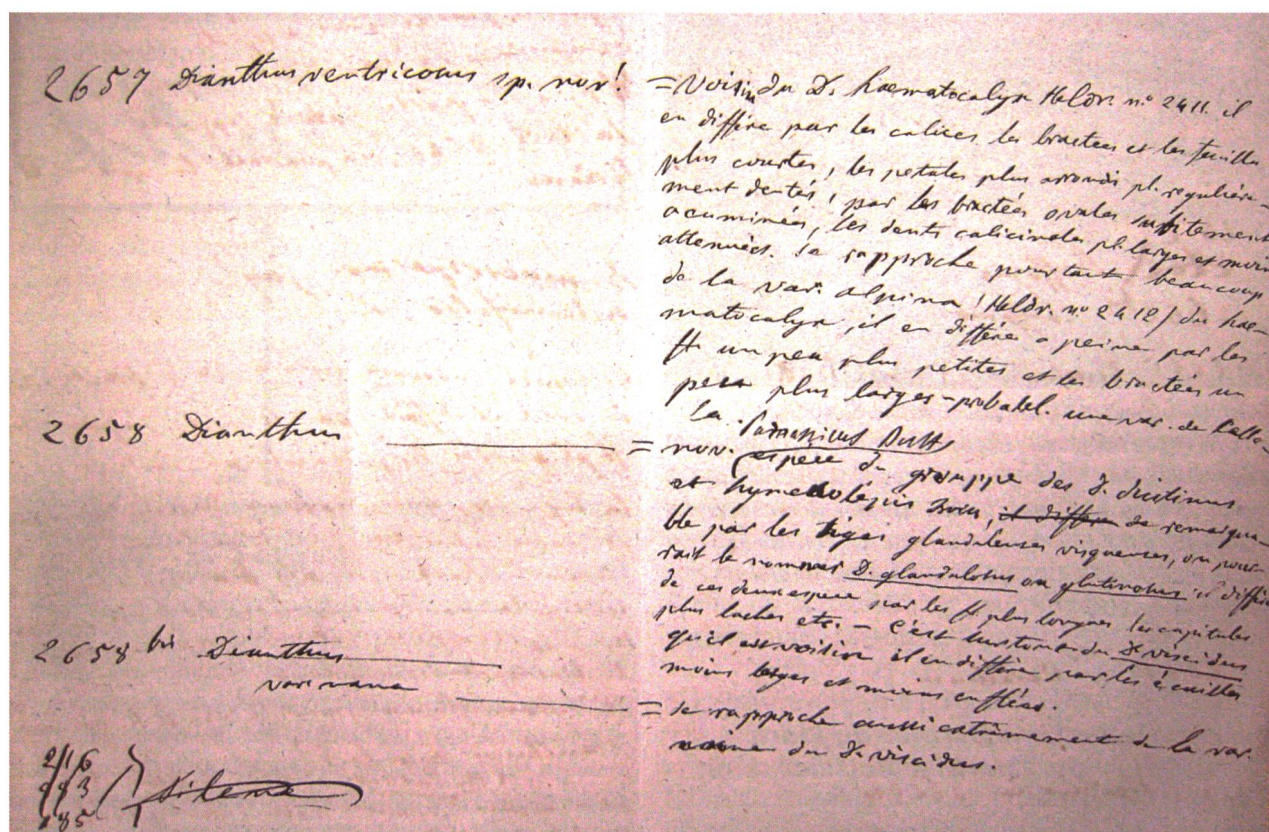 2657 Dianthus ventricosus sp. nov! = Voisin du D. haematocalyx Heldr. nº 2411. il
en diffère par les calices les bractees et les feuilles
plus courtes, les petales plus arrondis pl. régulière-
ment dentés, par les bractées ovales subitement
acuminées, les dents calicinales pl. larges et moins
attenuées. Se rapproche pourtant beaucoup
de la var. alpina (Heldr. nº 2412) du hae-
matocalyx, il en diffère a peine par les
fl. un peu plus petites et les bractées un
peu plus larges - probabl. une var. de
la
2658 Dianthus = nov.
espece du grouppe des D.
et Boiss, il differe de remarqua-
ble par les tiges glanduleuses visqueuses, on pour-
rait le nommer D. glandulosus ou glutinosus il diffère
de ces deux espece par les fl. plus longues les capitules
plus laches etc. - C'est du D. viscidus
qu'il est voisin il en diffère par les écailles
moins larges et moins enflées.
2658 bis Dianthus
var nana = Se rapproche aussi extrèmement de la var.
du D. viscidus.
2/16
183
185 } Silene